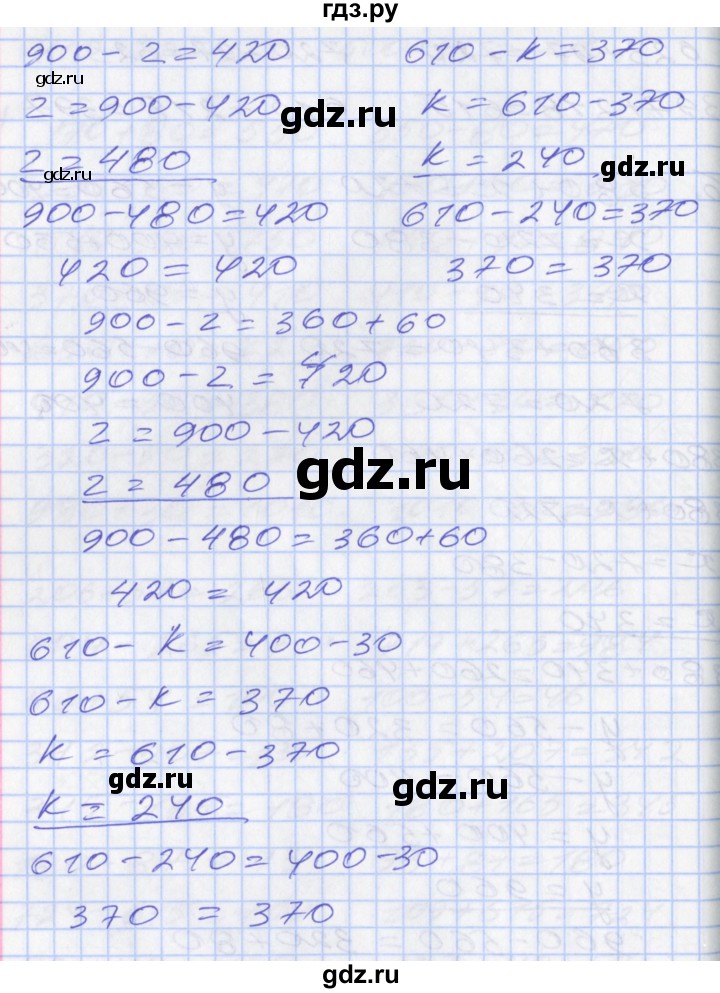 гдз.ру
900 - z = 420
z = 900 - 420
z = 480
900 - 480 = 420
420 = 420
610 - k = 370
k = 610 - 370
k = 240
610 - 240 = 370
370 = 370
900 - z = 360 + 60
900 - z = 420
z = 900 - 420
z = 480
900 - 480 = 360 + 60
420 = 420
610 - k = 400 - 30
610 - k = 370
k = 610 - 370
k = 240
610 - 240 = 400 - 30
370 = 370
gdz.ru
gdz.ru
gdz.ru
gdz.ru
gdz.ru
gdz.ru
gdz.ru
gdz.ru